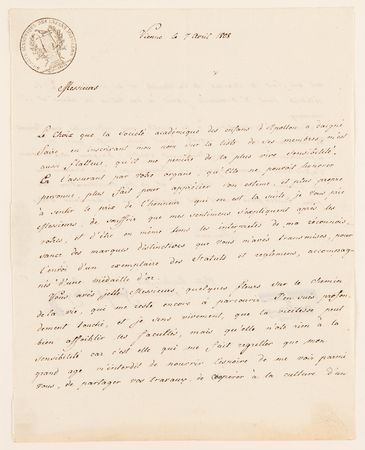 Vienne le 7 Avril 1808
Messieurs
Le choix que la Société académique des enfans d'Apollon a daigné
faire, en inscrivant mon nom sur la liste de ses membres, m'est
aussi flatteur, qu'il me pénètre de la plus vive sensibilité.
En l'assurant par votre organe, qu'Elle ne pouvait honorer
personne, plus fait pour apprécier son estime, et plus propre
à sentir le prix de l'honneur qui en est la suite, je vous prie
Messieurs, de souffrir que mes sentimens s'acquittent après les
votres, et d'être en même tems les interprètes de ma reconnois-
sance des marques distinctives que vous m'avés transmises, pour
l'envoi d'un exemplaire des Statuts et reglemens, accompag-
nés d'une médaille d'or.
Vous avés jetté Messieurs, quelques fleurs sur le chemin
de la vie, que me reste encore à parcourir. J'en suis profon-
dement touché, et je sens vivement, que la vieillesse peut
bien affaiblir les facultés, mais qu'elle n'ote rien à la
sensibilité car c'est elle qui me fait regretter que mon
grand age m'interdit de nourrir l'espoir de me voir parmi
vous, de partager vos travaux, de coopérer à la culture d'un